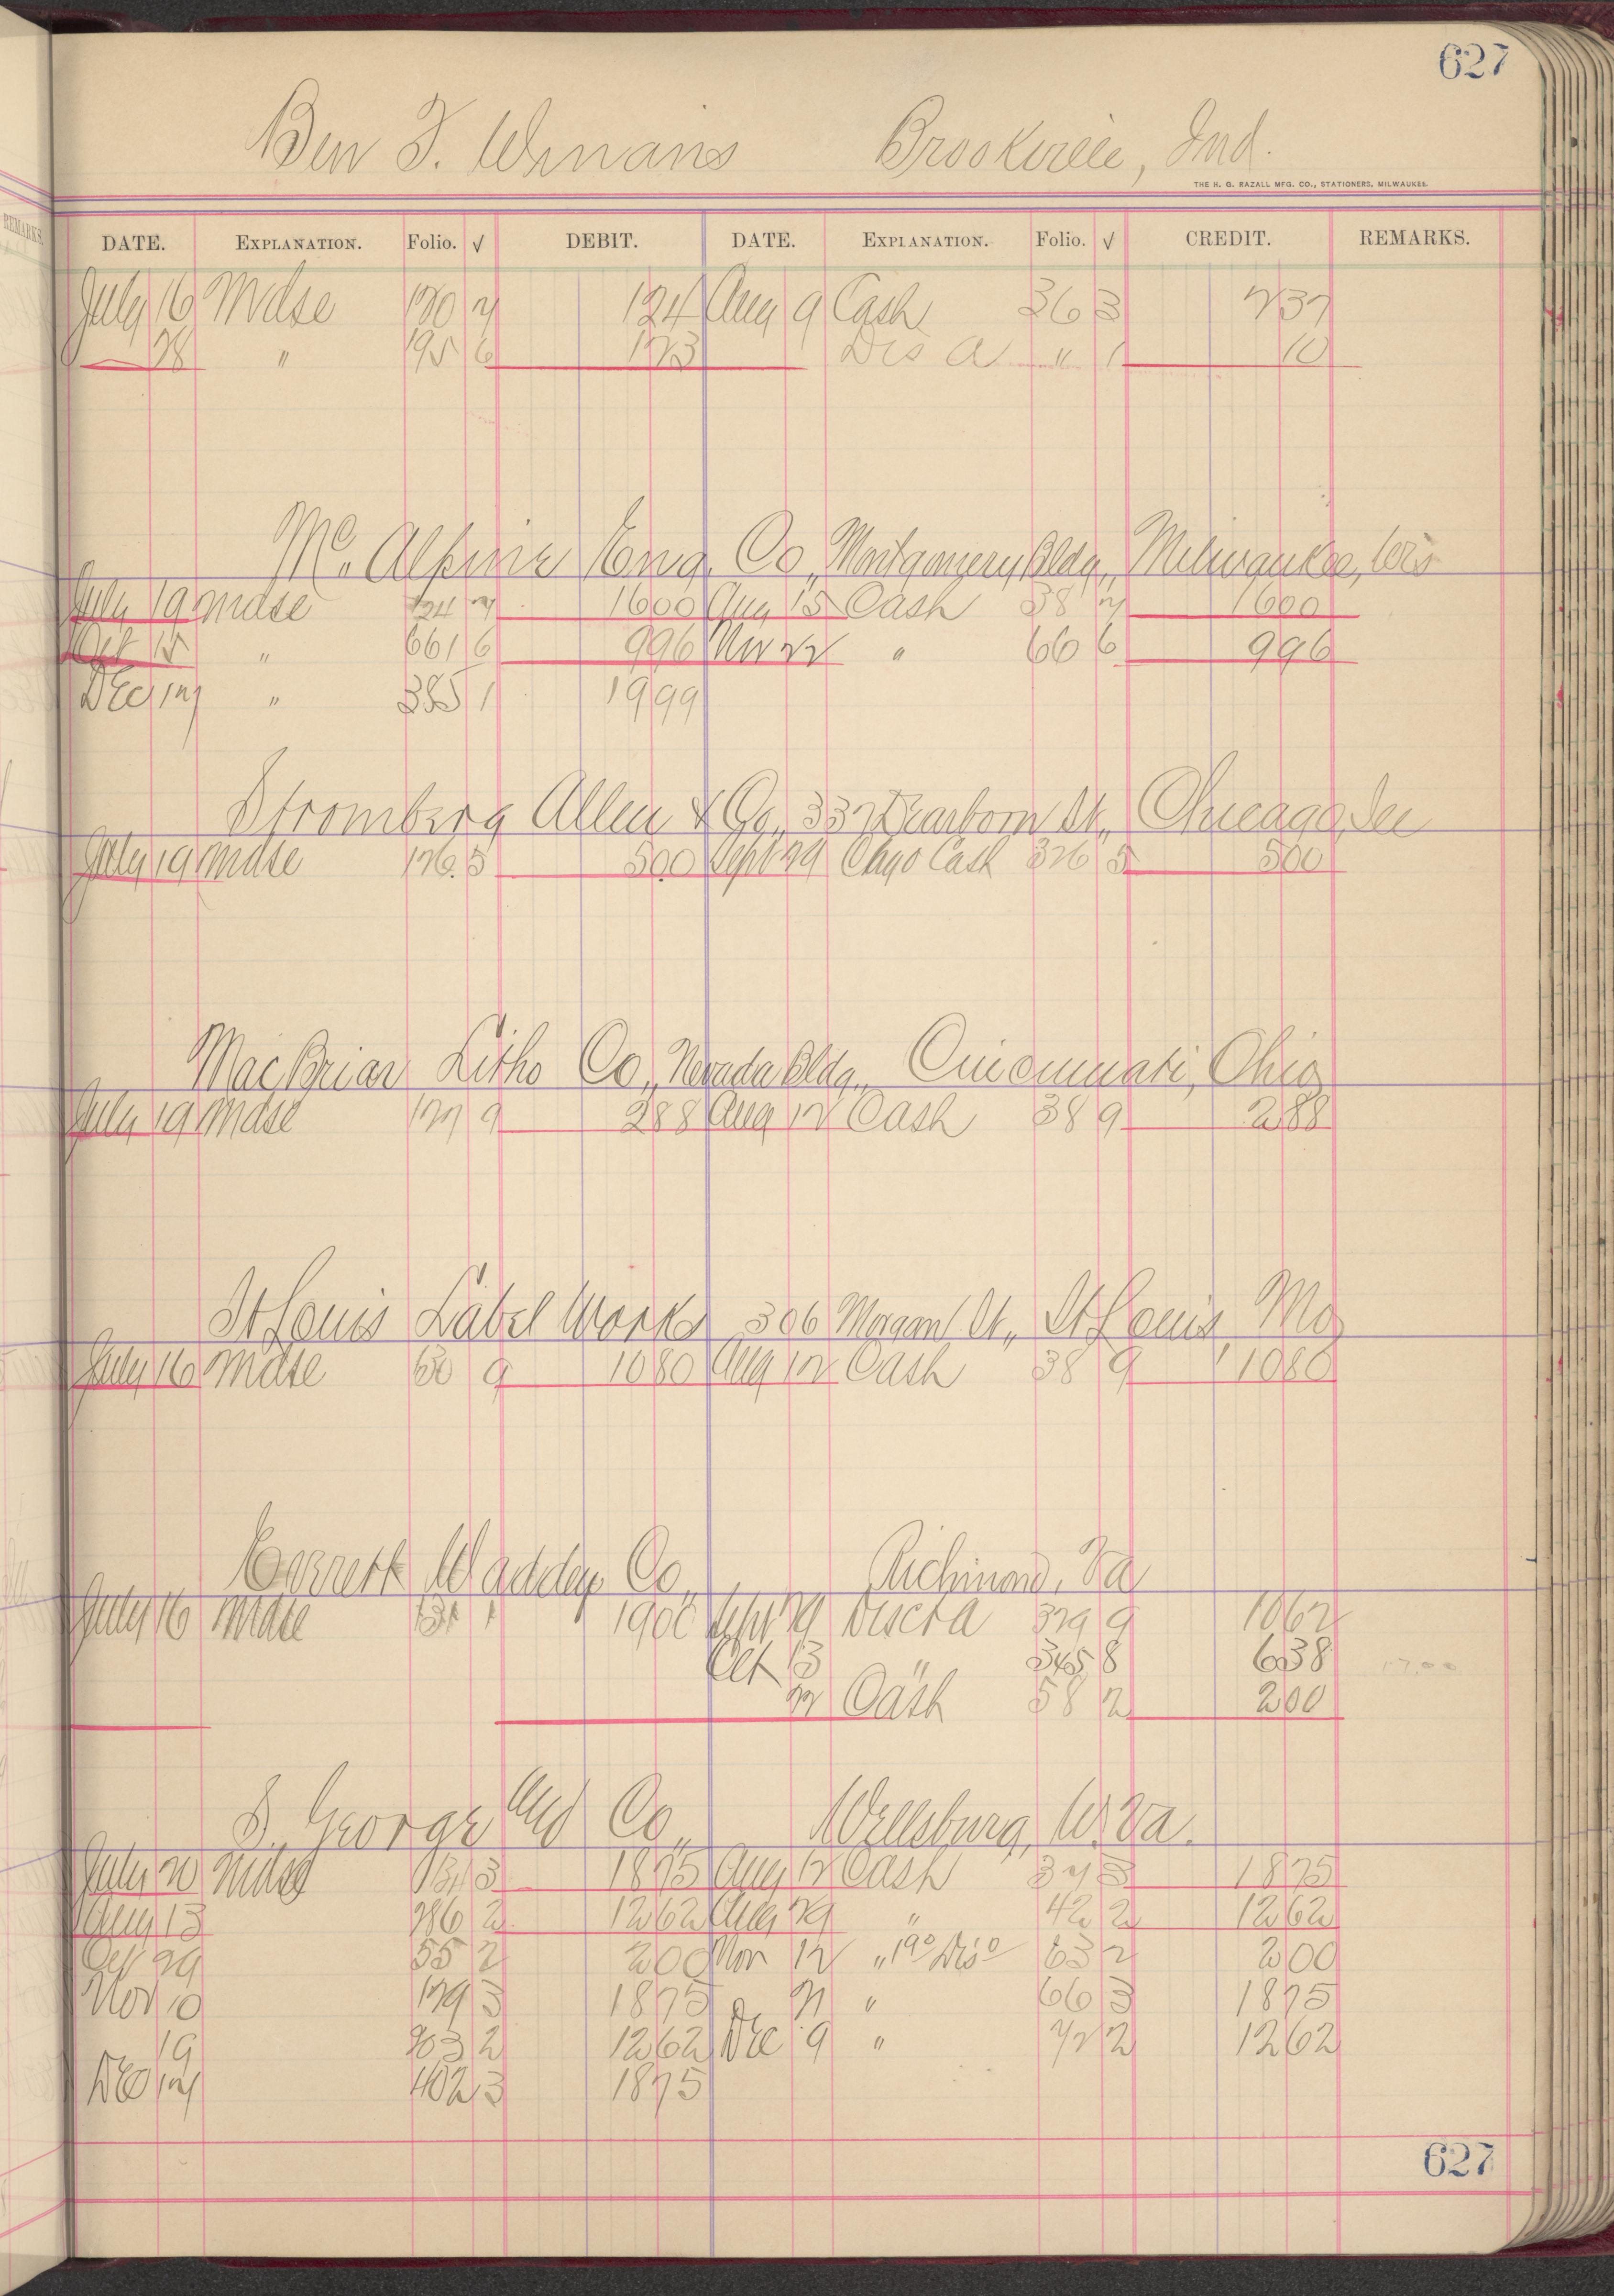 627
Ben F. Winans Brookville, Ind.
THE H. G. RAZALL MFG. CO., STATIONERS, MILWAUKEE.
REMARKS.
DATE. EXPLANATION. Folio. √ DEBIT. DATE. EXPLANATION. Folio. √ CREDIT. REMARKS.
July 16 Mdse 120 2 124 Aug 9 Cash 36 3 237
28 " 195 6 123 Dis A " 1 10
Mc. Alpine Eng. Co., Montgomery Bldg., Milwaukee, Wis
July 19 Mdse 124 7 1600 Aug 15 Cash 38 7 1600
Oct 15 " 661 6 996 Nov 22 " 66 6 996
Dec 17 " 385 1 1999
Stromberg Allen & Co., 337 Dearborn St., Chicago, Ill
July 19 Mdse 126 5 500 Sept 29 Chgo Cash 326 5 500
MacBriar Litho Co., Nevada Bldg., Cincinnati, Ohio
July 19 Mdse 127 9 288 Aug 12 Cash 38 9 288
St Louis Label Works 306 Morgan St., St Louis, Mo
July 16 Mdse 130 9 1080 Aug 12 Cash 38 9 1080
Everett Waddey Co., Richmond, Va
July 16 Mdse 131 1 1900 Sept 29 Discta 329 9 1062
Oct 13 " 345 8 638 17.00
22 Cash 58 2 200
S. George Co., Wellsburg, W. Va.
July 20 Mdse 134 3 1875 Aug 12 Cash 37 3 1875
Aug 13 286 2 1262 Aug 29 " 42 2 1262
Oct 29 55 2 200 Nov 12 " 63 2 200
Nov 10 179 3 1875 21 " 66 3 1875
19 203 2 1262 Dec 9 " 72 2 1262
Dec 17 402 3 1875
627